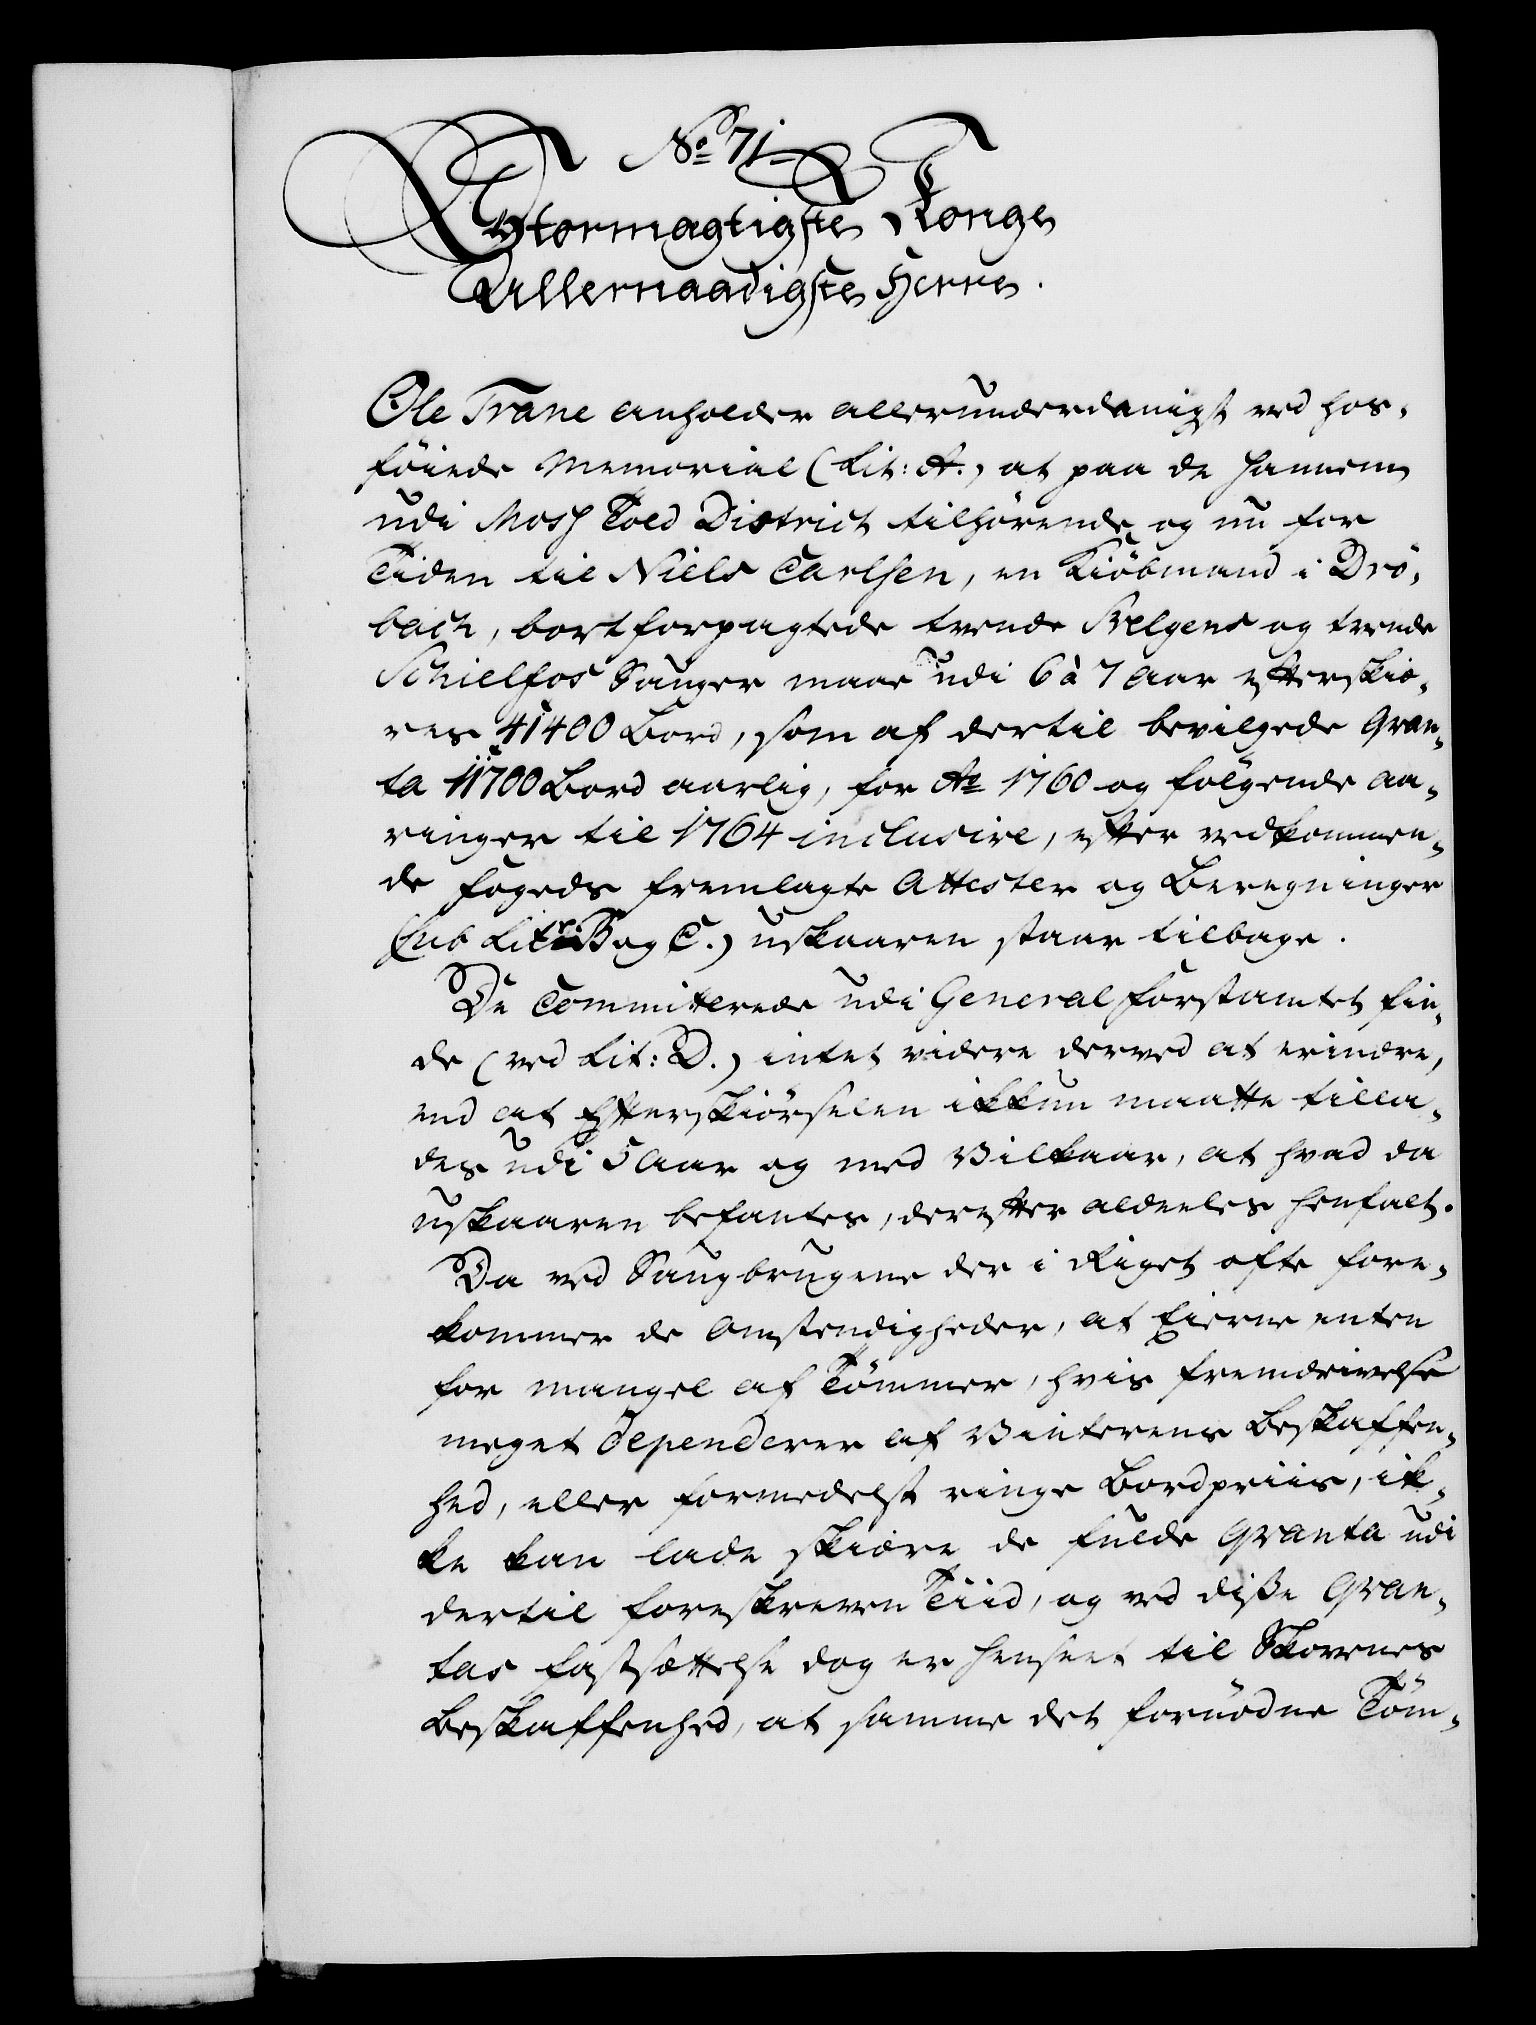 No 71.
Stormægtigste Konge
Allernaadigste Herre.
Ole Trane anholder allerunderdanigst ved hos-
föiede Memorial (Lit: A.) at paa de hannem
udi Moss Told District tilhörende og nu for
Tiden til Niels Carlsen, en Kiöbmand i Drö-
bach, bortforpagtede trende Krelgens og trende
Schielfos Sauger maae udi 6 à 7 Aar efterskiæ-
res 41400 Bord, som af dertil bevilgede Qvan-
ta 11700 Bord aarlig, for Ao 1760 og fölgende Aa-
ringer til 1764 inclusive, efter vedkommen-
de Fogeds fremlagte Attester og Beregninger
(sub Litris B og C.) uskaaren staar tilbage.
De Committerede udi General Forstamtet fin-
de (ved Lit: D.) intet videre derved at erindre,
end at Efterskiörselen ikkun maatte tilla-
des udi 5 Aar og med Vilkaar, at hvad da
uskaaren befantes, derefter aldeeles henfalt.
Da ved Saugbrugene der i Riget ofte fore-
kommer de Omstendigheder, at Eierne enten
for mangel af Tömmer, hvis fremdrivelse
meget dependerer af Vinterens Beskaffen-
hed, eller formedelst ringe Bordpriis, ik-
ke kan lade skiære de fulde Qvanta udi
dertil foreskreven Tiid, og ved disse Qvan-
tas fastsættelse dog er henseet til Skovenes
Beskaffenhed, at samme det fornödne Töm-